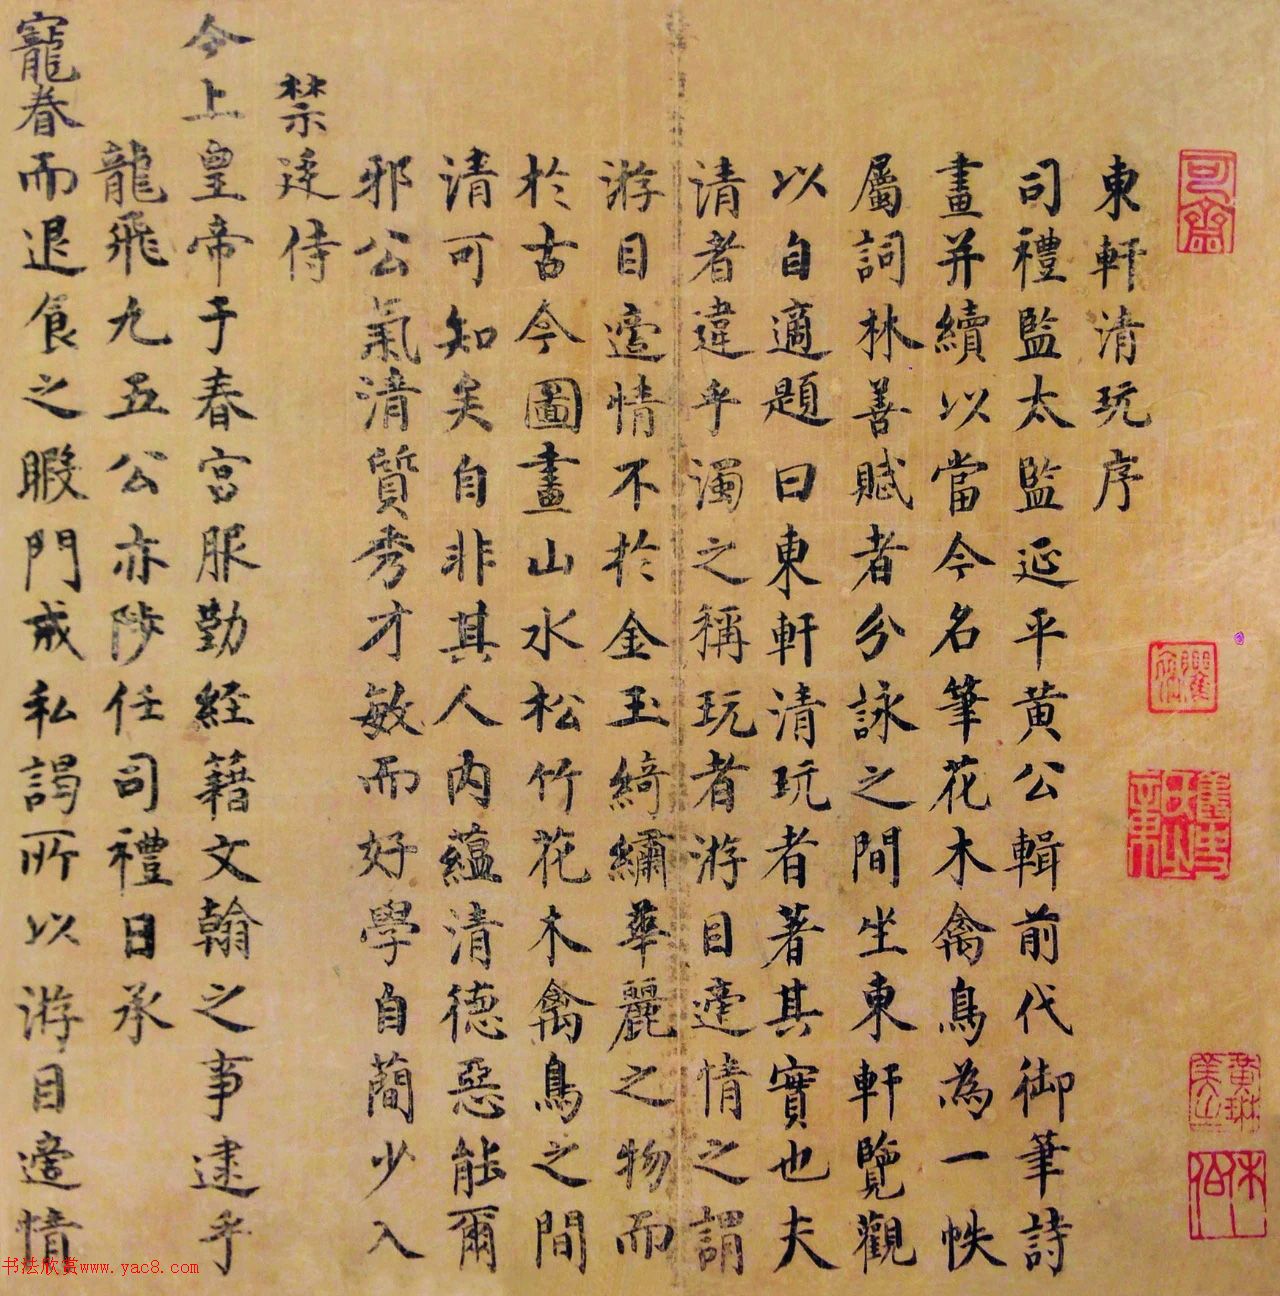 東軒清玩序
司禮監太監延平黃公輯前代御筆詩
畫并續以當今名筆花木禽鳥為一帙
屬詞林善賦者分詠之間坐東軒覽觀
以自適題曰東軒清玩者著其實也夫
清者違乎濁之稱玩者游目適情之謂
游目適情不於金玉綺繡華麗之物而
於古今圖畫山水松竹花木禽鳥之間
清可知矣自非其人內蘊清德惡能爾
邪公氣清質秀才敏而好學自蕳少入
禁廷侍
今上皇帝于春宮服勤經籍文翰之事逮乎
龍飛九五公亦陟任司禮日承
寵眷而退食之暇門戒私謁所以游目適情
可齋
书法欣赏www.yac8.com